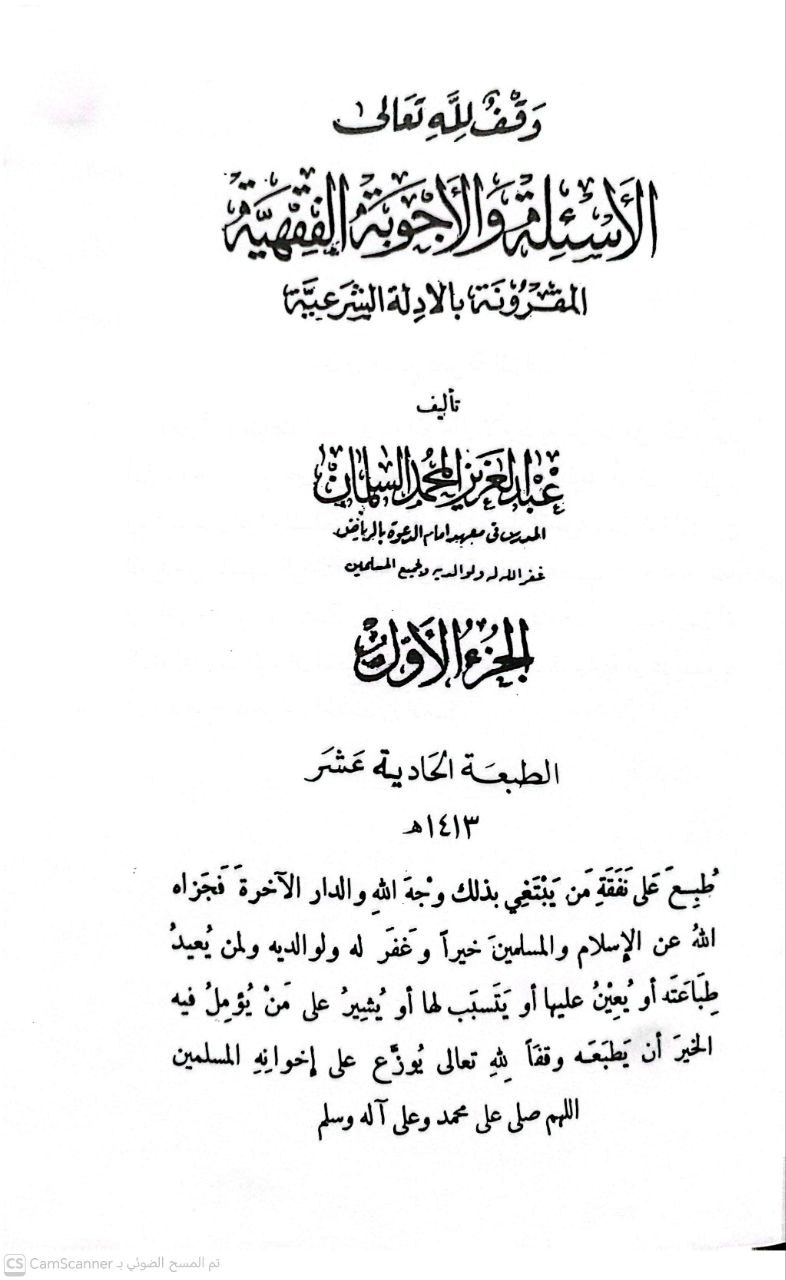 وَقْفٌ لِلَّهِ تَعَالى
الأَسْئِلَةُ وَالأَجْوِبَةُ الفِقْهِيَّةُ
المقْرُونَة بالأدِلة الشَّرعيَّة
تأليف
عَبْد العَزيز المحَمَّد السلمان
المدرس في معهد امام الدعوة بالرياض
غفر الله له ولوالديه ولجميع المسلمين
الجزءُ الأوّل
الطبعَة الحَادية عَشَر
١٤١٣هـ
طُبِعَ عَلى نَفَقَةِ مَن يَبْتَغِي بذلك وجْهَ اللهِ والدار الآخرةَ فَجَزاه
اللهُ عن الإسلام والمسلمينَ خيراً وَغَفَر له ولوالديه ولمن يُعيدُ
طِبَاعَتَه أو يُعِيْنُ عليها أو يَتَسبَب لها أو يُشِيرُ على مَنْ يُؤمِلُ فيه
الخيرَ أن يَطبَعَه وقفَاً لِلهِ تعالى يُوزَّع على إخوانِهِ المسلمين
اللهم صلى على محمد وعلى آله وسلم
CS CamScanner تم المسح الضوئي بـ